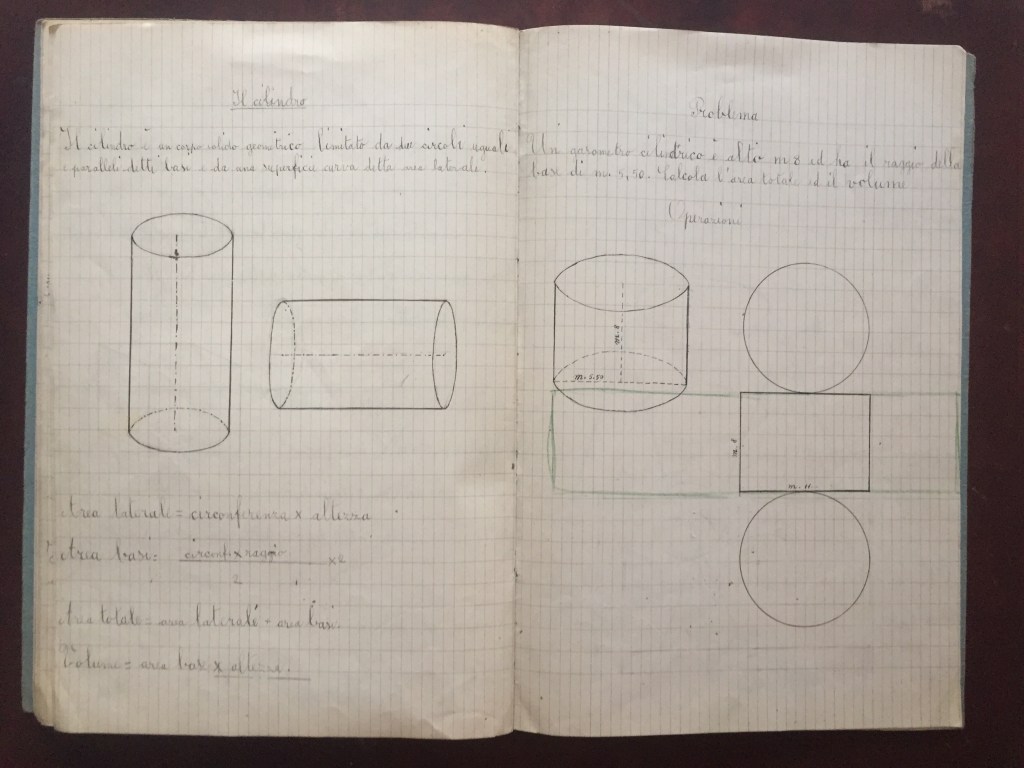 Il cilindro
Il cilindro è un corpo solido geometrico limitato da due circoli uguali
e paralleli detti basi e da una superficie curva detta area laterale.
Area laterale = circonferenza x altezza
Area basi = circonf. x raggio x 2
2
Area totale = area laterale + area basi.
Volume = area base x altezza.
Problema
Un gasometro cilindrico è alto m 8 ed ha il raggio della
base di m. 5,50. Calcola l'area totale ed il volume
Operazioni
m. 8
m. 5.50
m. 8
m. 11